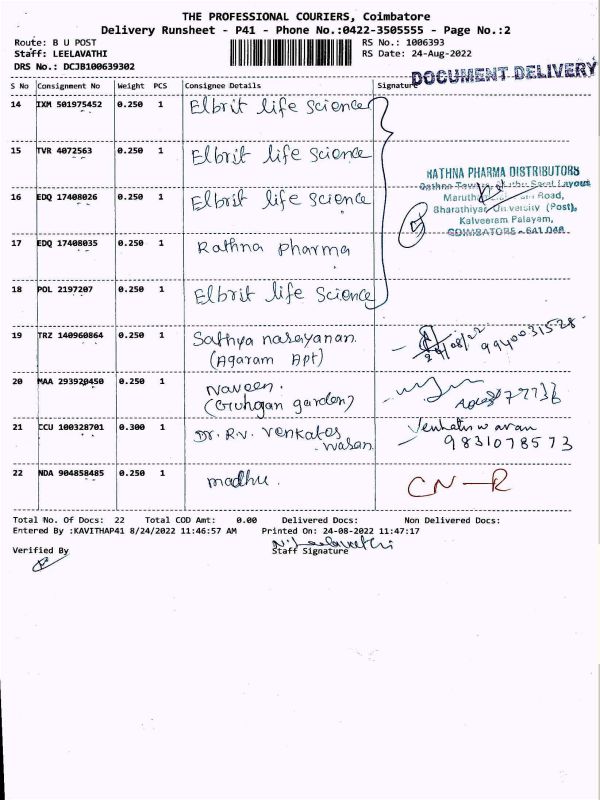 THE PROFESSIONAL COURIERS, Coimbatore
Delivery Runsheet - P41 - Phone No.:0422-3505555 - Page No.:2
Route: B U POST
RS No.: 1006393
Staff: LEELAVATHI
RS Date: 24-Aug-2022
DRS No.: DCJB100639302
DOCUMENT DELIVERY
S No Consignment No Weight PCS Consignee Details Signature
14 IXM 501975452 0.250 1 Elbrit life Science
15 TVR 4072563 0.250 1 Elbrit life Science
RATHNA PHARMA DISTRIBUTORS
Road,
16 EDQ 17408026 0.250 1 Elbrit life Science
Bharathiyar University (Post),
Kalveeram Palayam,
COIMBATORE - 641 046
17 EDQ 17408035 0.250 1 Rathna Pharma
18 POL 2197207 0.250 1 Elbrit life Science
19 TRZ 140960864 0.250 1 Sathya narayanan
(Agaram Apt)
24/08/22 9940031528
20 MAA 293920450 0.250 1 Naveen.
(Gruhgan garden)
21 CCU 100328701 0.300 1 Dr. R.V. Venkates
wasan
9831078573
22 NDA 904858485 0.250 1 madhu.
CN-R
Total No. Of Docs: 22 Total COD Amt: 0.00 Delivered Docs: Non Delivered Docs:
Entered By :KAVITHAP41 8/24/2022 11:46:57 AM Printed On: 24-08-2022 11:47:17
Verified By
Staff Signature